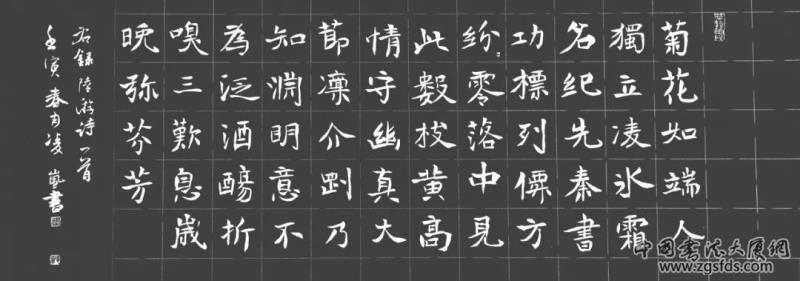 菊花如端人
獨立凌冰霜
名纪先秦書
功標列僊方
纷纷零落中見
此數枝黄高
情守幽真大
節凜介剛乃
知淵明意不
為泛酒觴折
嗅三歎息歲
晚弥芬芳
右録陸游诗一首
壬寅春月凌嵐書
中国书法大展网
www.zgsfds.com